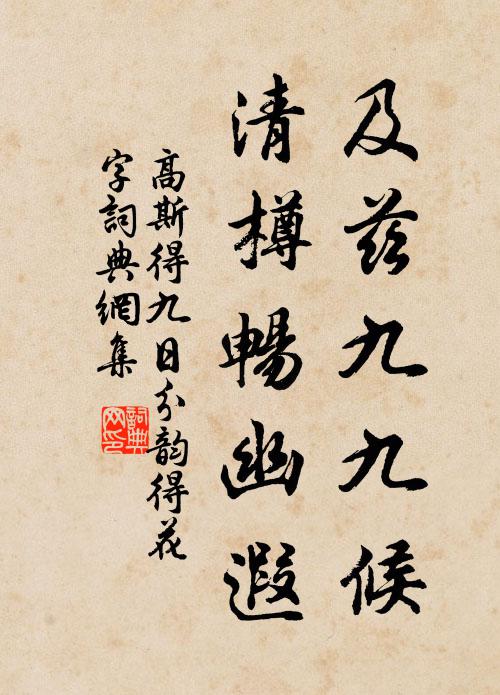 及茲九九候
清樽暢幽遐
高斯得九日分韵得花
字詞典網集
詞典
网印